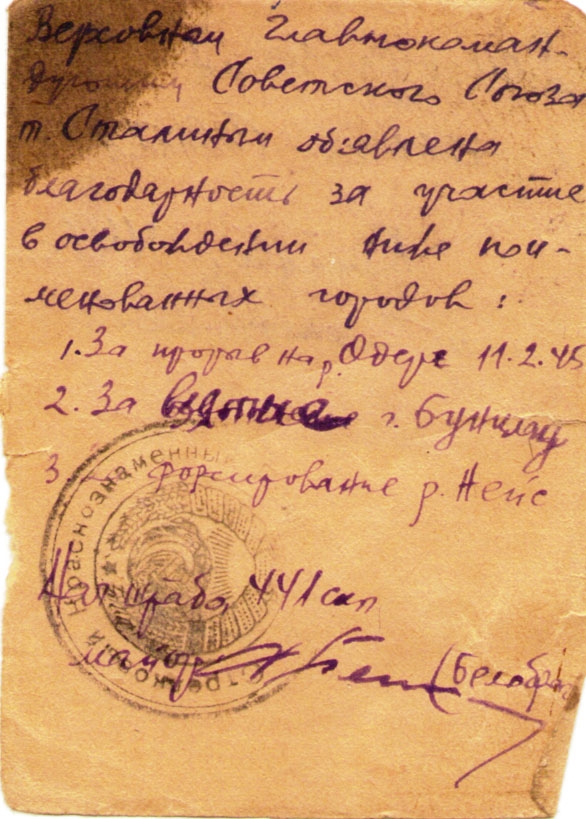 Верховным Главнокоман-
дующим Советского Союза
т. Сталиным объявлена
благодарность за участие
в освобождении ниже пои-
менованных городов:
1. За прорыв на р. Одере 11.2.45
2. За взятие г. Бунцлау
3 За форсирование р. Нейс
Краснознаменный
Нач штаба 441 сп
майор (Белобр